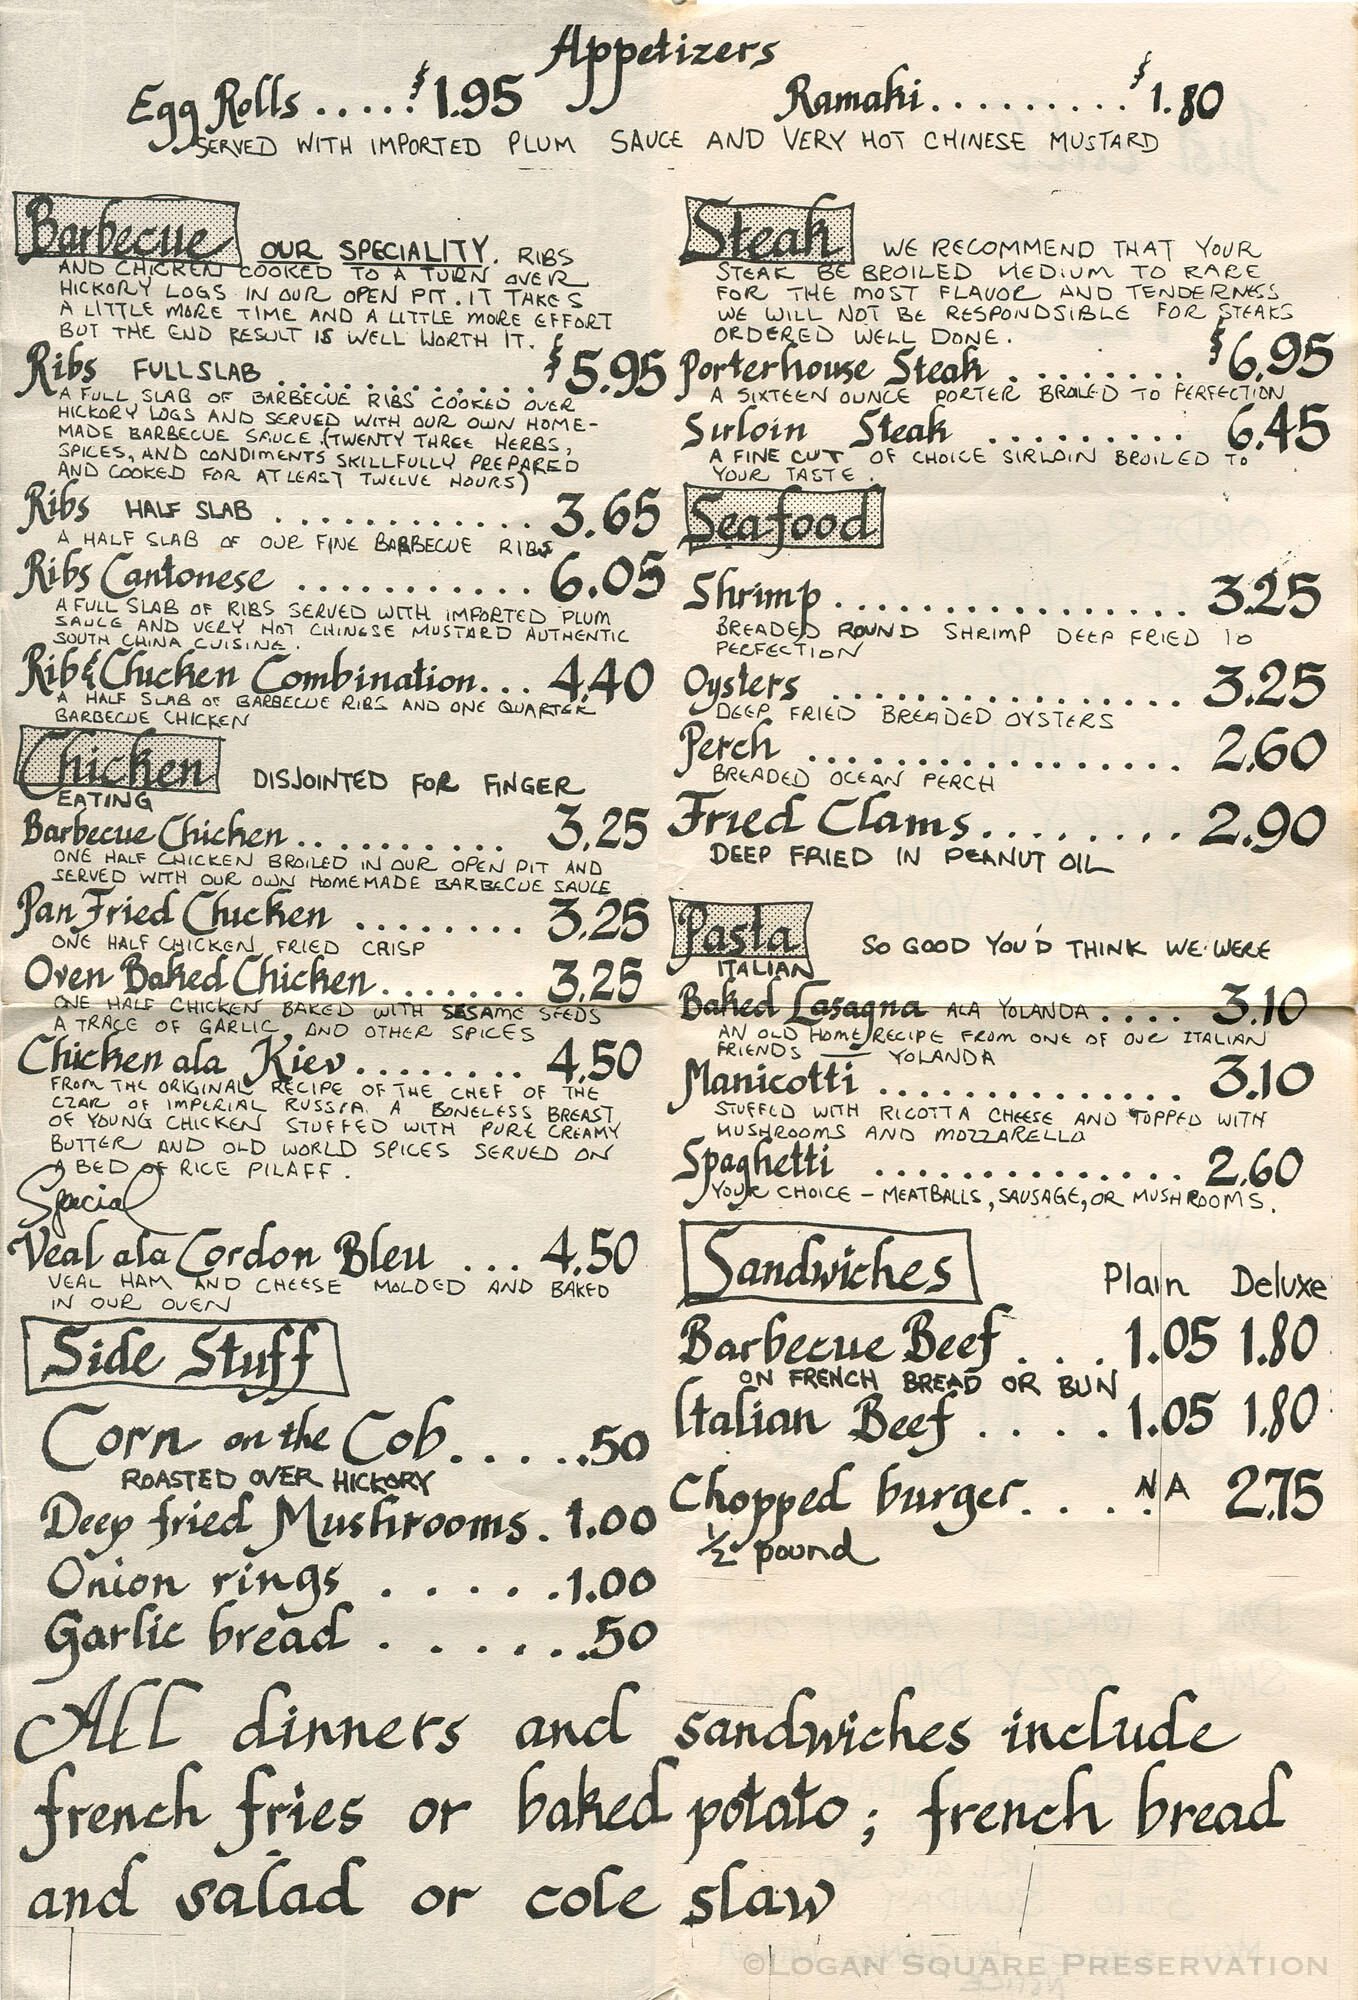 Appetizers
Egg Rolls ..... $1.95
Ramaki ......... $1.80
SERVED WITH IMPORTED PLUM SAUCE AND VERY HOT CHINESE MUSTARD
Barbecue OUR SPECIALITY. RIBS
AND CHICKEN COOKED TO A TURN OVER
HICKORY LOGS IN OUR OPEN PIT. IT TAKES
A LITTLE MORE TIME AND A LITTLE MORE EFFORT
BUT THE END RESULT IS WELL WORTH IT.
Ribs FULL SLAB ............ $5.95
A FULL SLAB OF BARBECUE RIBS COOKED OVER
HICKORY LOGS AND SERVED WITH OUR OWN HOME-
MADE BARBECUE SAUCE (TWENTY THREE HERBS,
SPICES, AND CONDIMENTS SKILLFULLY PREPARED
AND COOKED FOR AT LEAST TWELVE HOURS)
Ribs HALF SLAB ............ 3.65
A HALF SLAB OF OUR FINE BARBECUE RIBS
Ribs Cantonese ........... 6.05
A FULL SLAB OF RIBS SERVED WITH IMPORTED PLUM
SAUCE AND VERY HOT CHINESE MUSTARD AUTHENTIC
SOUTH CHINA CUISINE.
Rib & Chicken Combination... 4.40
A HALF SLAB OF BARBECUE RIBS AND ONE QUARTER
BARBECUE CHICKEN
Chicken DISJOINTED FOR FINGER
EATING
Barbecue Chicken .......... 3.25
ONE HALF CHICKEN BROILED IN OUR OPEN PIT AND
SERVED WITH OUR OWN HOMEMADE BARBECUE SAUCE
Pan Fried Chicken ........ 3.25
ONE HALF CHICKEN FRIED CRISP
Oven Baked Chicken ....... 3.25
ONE HALF CHICKEN BAKED WITH SESAME SEEDS
A TRACE OF GARLIC AND OTHER SPICES
Chicken ala Kiev ........ 4.50
FROM THE ORIGINAL RECIPE OF THE CHEF OF THE
CZAR OF IMPERIAL RUSSIA. A BONELESS BREAST
OF YOUNG CHICKEN STUFFED WITH PURE CREAMY
BUTTER AND OLD WORLD SPICES SERVED ON
A BED OF RICE PILAFF.
Special
Veal ala Cordon Bleu ... 4.50
VEAL HAM AND CHEESE MOLDED AND BAKED
IN OUR OVEN
Side Stuff
Corn on the Cob ..... .50
ROASTED OVER HICKORY
Deep fried Mushrooms . 1.00
Onion rings ..... 1.00
Garlic bread ..... .50
Steak WE RECOMMEND THAT YOUR
STEAK BE BROILED MEDIUM TO RARE
FOR THE MOST FLAVOR AND TENDERNESS
WE WILL NOT BE RESPONDSIBLE FOR STEAKS
ORDERED WELL DONE.
Porterhouse Steak ........ $6.95
A SIXTEEN OUNCE PORTER BROILED TO PERFECTION
Sirloin Steak ......... 6.45
A FINE CUT OF CHOICE SIRLOIN BROILED TO
YOUR TASTE.
Seafood
Shrimp ................ 3.25
BREADED ROUND SHRIMP DEEP FRIED TO
PERFECTION
Oysters ................ 3.25
DEEP FRIED BREADED OYSTERS
Perch ................. 2.60
BREADED OCEAN PERCH
Fried Clams ........ 2.90
DEEP FRIED IN PEANUT OIL
Pasta SO GOOD YOU'D THINK WE WERE
ITALIAN
Baked Lasagna ALA YOLANDA .... 3.10
AN OLD HOME RECIPE FROM ONE OF OUR ITALIAN
FRIENDS — YOLANDA
Manicotti ............... 3.10
STUFFED WITH RICOTTA CHEESE AND TOPPED WITH
MUSHROOMS AND MOZZARELLA
Spaghetti .............. 2.60
YOUR CHOICE - MEATBALLS, SAUSAGE, OR MUSHROOMS.
Sandwiches Plain Deluxe
Barbecue Beef ... 1.05 1.80
ON FRENCH BREAD OR BUN
Italian Beef .... 1.05 1.80
Chopped burger .... NA 2.75
1/2 pound
All dinners and sandwiches include
french fries or baked potato; french bread
and salad or cole slaw
©LOGAN SQUARE PRESERVATION